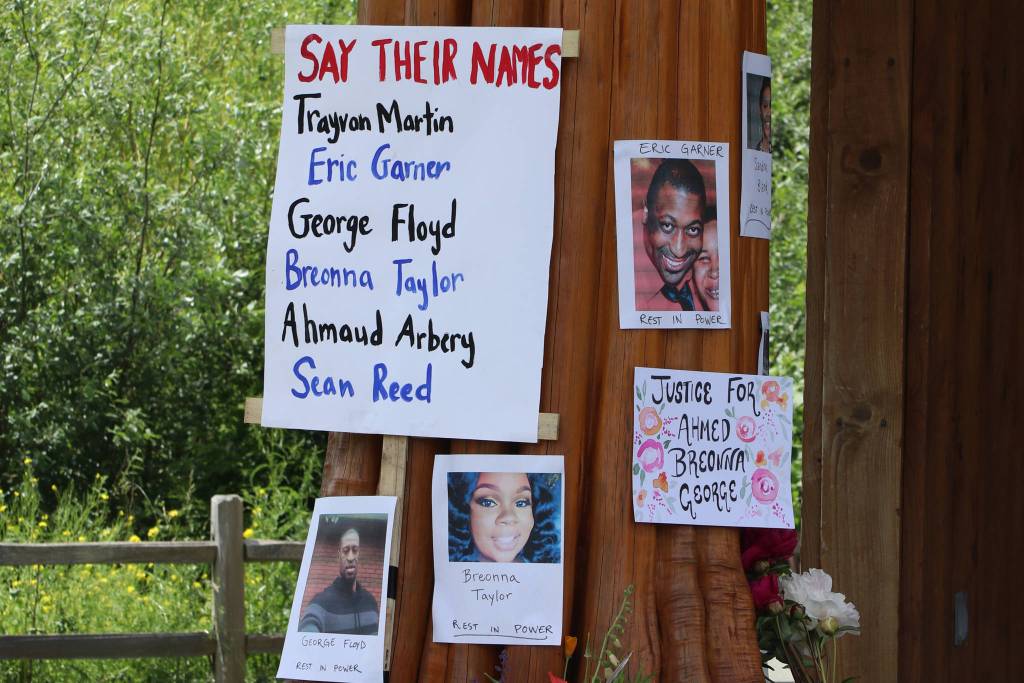 SAY THEIR NAMES
Trayvon Martin
Eric Garner
George Floyd
Breonna Taylor
Ahmaud Arbery
Sean Reed
ERIC GARNER
REST IN POWER
Sandra
Bland
REST IN POWER
JUSTICE FOR
AHMED
BREONNA
GEORGE
GEORGE FLOYD
REST IN POWER
Breonna
Taylor
REST IN POWER